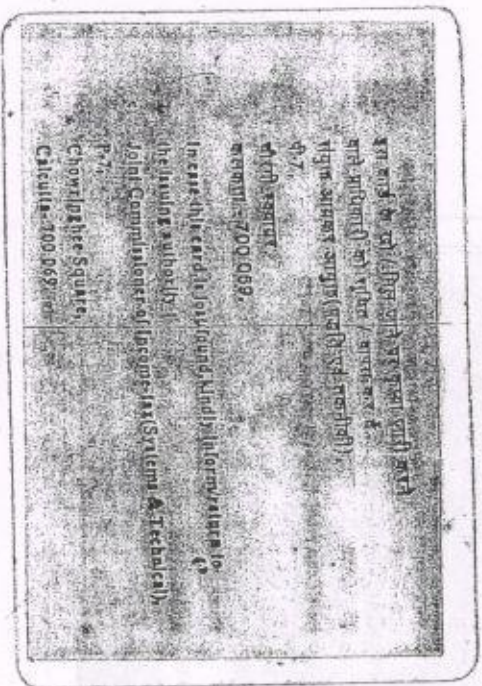 इस कार्ड के खो / मिल जाने पर कृप्या जारी करने
वाले प्राधिकारी को सूचित / वापस कर दें
संयुक्त आयकर आयुक्त(पद्धति एवं तकनीकी),
पी-7,
चौरंगी स्क्वायर,
कलकत्ता - 700 069.
In case this card is lost/found, kindly inform/return to
the issuing authority :
Joint Commissioner of Income-tax(Systems & Technical),
P-7,
Chowringhee Square,
Calcutta- 700 069.